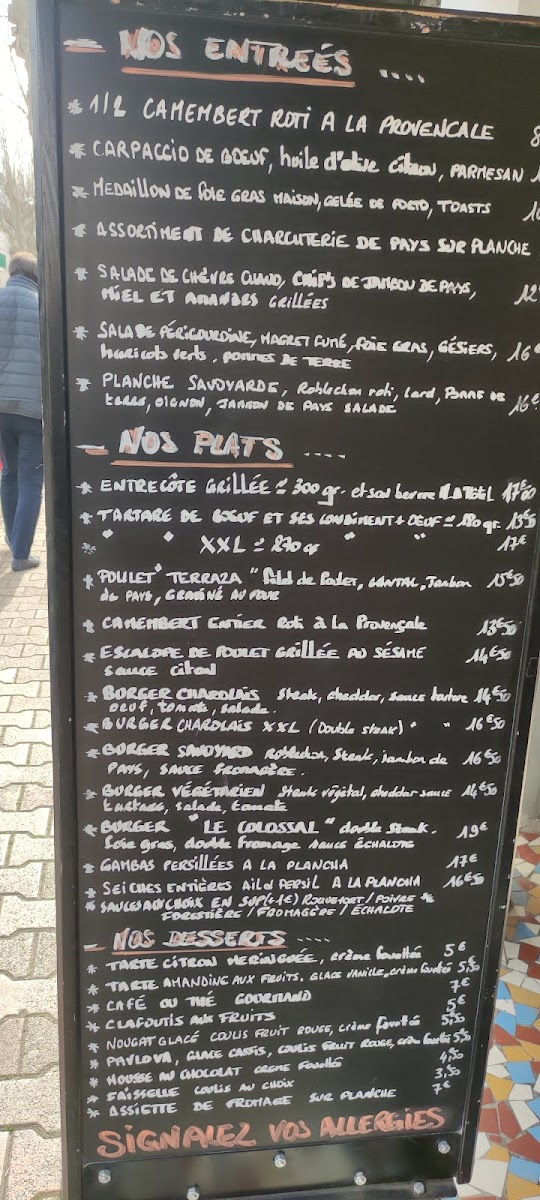 NOS ENTREÉS ....
* 1/2 CAMEMBERT ROTI A LA PROVENCALE 8
* CARPACCIO DE BOEUF, huile d'olive citron, PARMESAN 1
* MEDAILLON DE foie GRAS MAISON, GELÉE DE PORTO, TOASTS 1
* ASSORTIMENT DE CHARCUTERIE DE PAYS SUR PLANCHE
* SALADE DE CHÈVRE CHAUD, CHIPS DE JAMBON DE PAYS, 12
MIEL ET AMANDES GRILLÉES
* SALADE PÉRIGOURDINE, MAGRET FUMÉ, foie GRAS, GÉSIERS, 16€
haricots verts, POMMES DE TERRE
* PLANCHE SAVOYARDE, Reblochon roti, lard, POMME DE 16€
terre, OIGNON, JAMBON DE PAYS SALADE
NOS PLATS ....
* ENTRECÔTE GRILLÉE = 300 gr. et son beurre 17€00
* TARTARE DE BOEUF ET SES CONDIMENT + OEUF = 180 gr. 13€50
* " " XXL = 270 gr " " 17€
* POULET "TERRAZA" filet de Poulet, CANTAL, Jambon 15€50
de PAYS, GRATINÉ AU FOUR
* CAMEMBERT ENTIER Roti à la Provençale 13€50
* ESCALOPE DE POULET GRILLÉE AU SÉSAME 14€50
sauce citron
* BURGER CHAROLAIS steak, cheddar, sauce tartare 14€50
oeuf, tomate, salade.
* BURGER CHAROLAIS XXL (Double steak) " " 16€50
* BURGER SAVOYARD Reblochon, Steak, jambon de 16€50
PAYS, SAUCE FROMAGÈRE.
* BURGER VÉGÉTARIEN Steak végétal, cheddar sauce 14€50
tartare, salade, tomate
* BURGER "LE COLOSSAL" double Steak. 19€
foie gras, double fromage SAUCE ÉCHALOTE
* GAMBAS PERSILLÉES A LA PLANCHA 17€
* SEICHES ENTIÈRES Ail et PERSIL A LA PLANCHA 16€50
* SAUCES AU CHOIX EN SUP (+1€) ROQUEFORT / POIVRE *
FORESTIÈRE / FROMAGÈRE / ÉCHALOTE
NOS DESSERTS ....
* TARTE CITRON MERINGUÉE, crème fouettée 5€
* TARTE AMANDINE AUX FRUITS, GLACE VANILLE, crème fouettée 5,50
* CAFÉ OU THÉ GOURMAND 7€
* CLAFOUTIS AUX FRUITS 5€
* NOUGAT GLACÉ COULIS FRUIT ROUGE, crème fouettée 5,50
* PAVLOVA, GLACE CASSIS, COULIS FRUIT ROUGE, crème fouettée 5,50
* MOUSSE AU CHOCOLAT CREME Fouettée 4,50
* FAISSELLE COULIS AU CHOIX 3,50
* ASSIETTE DE FROMAGE SUR PLANCHE 7€
SIGNALEZ VOS ALLERGIES